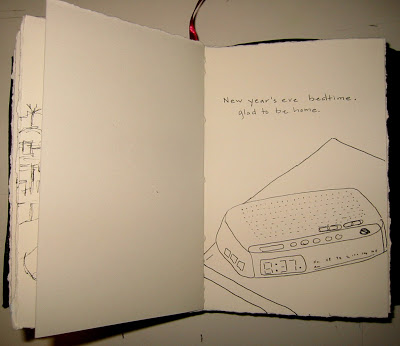 New year's eve bedtime.
glad to be home.
9:37